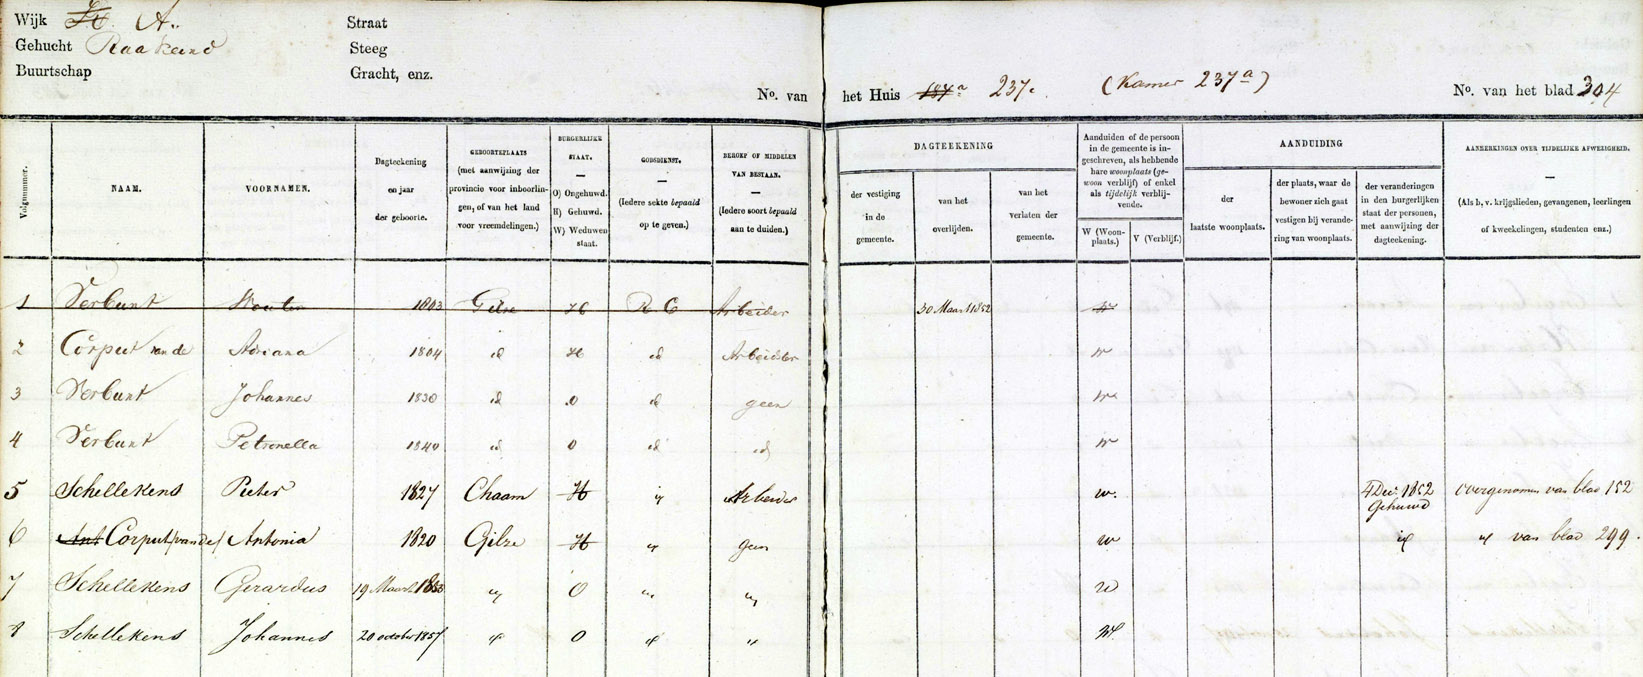 Wijk H A.
Straat
Gehucht Raakeind
Steeg
Buurtschap
Gracht, enz.
No. van het Huis 237. (Kamer 237a) No. van het blad 304
Volgnummer.
NAAM.
VOORNAMEN.
Dagteekening
en jaar
der geboorte.
GEBOORTEPLAATS
(met aanwijzing der
provincie voor inboorlin-
gen, of van het land
voor vreemdelingen.)
BURGERLIJKE
STAAT.
O) Ongehuwd.
H) Gehuwd.
W) Weduwen
staat.
GODSDIENST.
(Iedere sekte bepaald
op te geven.)
BEROEP OF MIDDELEN
VAN BESTAAN.
(Iedere soort bepaald
aan te duiden.)
DAGTEEKENING
der vestiging
in de
gemeente.
van het
overlijden.
van het
verlaten der
gemeente.
Aanduiden of de persoon
in de gemeente is in-
geschreven, als hebbende
hare woonplaats (ge-
woon verblijf) of enkel
als tijdelijk verblij-
vende.
W (Woon-
plaats.)
V (Verblijf.)
AANDUIDING
der
laatste woonplaats.
der plaats, waar de
bewoner zich gaat
vestigen bij verande-
ring van woonplaats.
der veranderingen
in den burgerlijken
staat der persouen,
met aanwijzing der
dagteekening.
AANMERKINGEN OVER TIJDELIJKE AFWEZIGHEID.
(Als b. v. krijgslieden, gevangenen, leerlingen
of kweekelingen, studenten enz.)
1 Verbunt Wouter 1803 Gilze H R C Arbeider 30 Maart 1852 w
2 Corput van de Adriana 1804 id H id Arbeidster w
3 Verbunt Johannes 1830 id O id geen w
4 Verbunt Petronella 1840 id O id id w
5 Schellekens Pieter 1827 Chaam H " Arbeider w. 4 Dec. 1852 Gehuwd overgenomen van blad 152
6 Ant Corput (van de) Antonia 1820 Gilze H " geen w " " van blad 299.
7 Schellekens Gerardus 19 Maart 1853 " O " " w
8 Schellekens Johannes 20 october 1857 " O " " W.